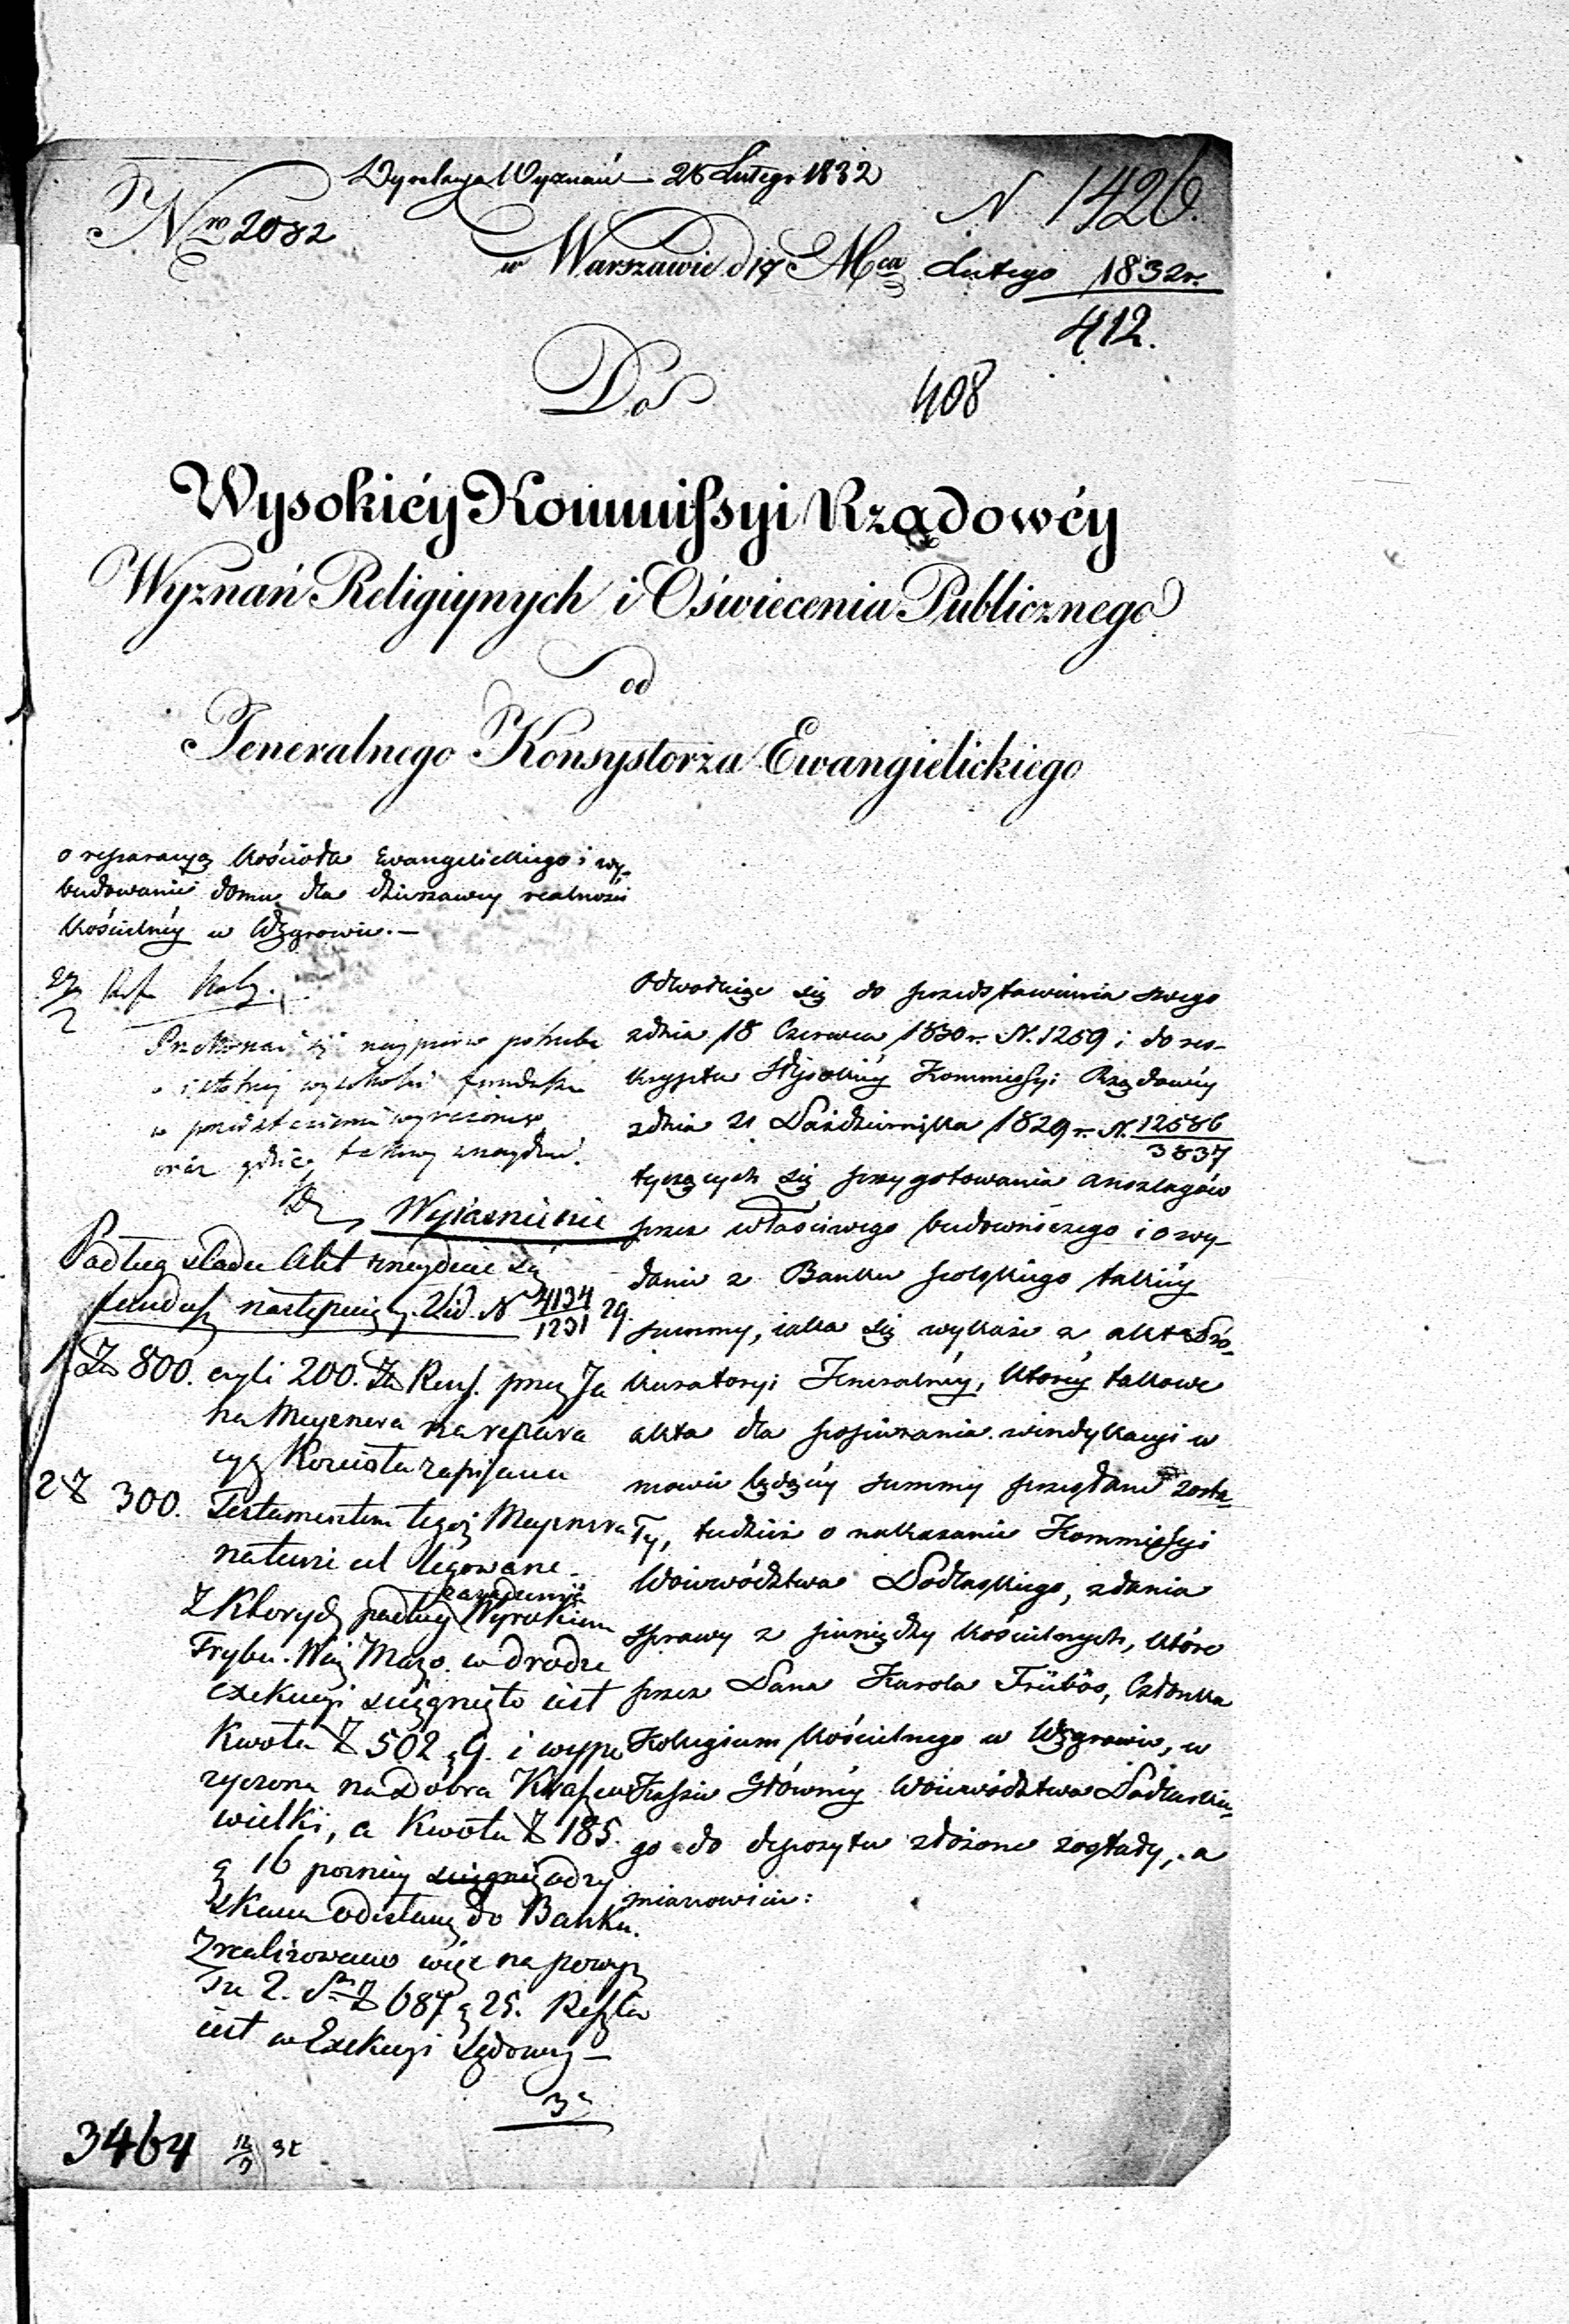 Dyrekcya Wyznań — 26 Lutego 1832
N 1426.
Nro 2082
w Warszawie d 17 Mca Lutego 1832 r.
412.
Do
408
Wysokiéy Kommissyi Rządowéy
Wyznań Religiynych i Oświecenia Publicznego
od
Jeneralnego Konsystorza Ewangielickiego
o reparacyą kościoła Ewangelickiego i wy-
budowanie domu dla dzierzawcy realności
kościelnéy w Węgrowie. —
27
2
Przekonać się naypierw potrzeba
o istotnéy wysokości funduszu
w przedstawieniu wyrażonego
oraz gdzie takowy znayduie.
Wyiaśnienie
Podług śladu Akt znayduie się
fundusz następuiący. Vid. N 4134/1231 29.
1. Zł 800. czyli 200. Tal. przez Ja
na Meyznera na repara
cyą Kościoła zapisana
2 Zł 300. Testamentem tegoż Meyznera
na tenże cel legowane —
Z których podług Wyrokiem
Trybu. Wdz Mazo. w drodze
exekucyi ściągnięto iest
Kwota Zł 502 g 9. i wypo
zyczona na Dobra
wielki, a Kwota Zł 185.
g 16 pozniey ściągnię odzy
skana odesłaną do Banku.
Zrealizowano więc na powyż
sze 2. Sm Zł 687 g 25. Reszta
iest w Exekucyi Sądowey —
Odwołuiąc się do przedstawienia swego
z dnia 18 Czerwca 1830 r. N. 1259 i do res-
kryptu Wysokiéy Kommissyi Rządowéy
z dnia 21 Października 1829 r. N. 12586/3837
tyczących się przygotowania anszlagów
przez właściwego budowniczego i o wy-
danie z Banku polskiego takiéy
summy, iaka się wykaże z akt Pro-
kuratoryi Jeneralnéy, któréy takowe
akta dla popierania windykacyi w
mowie będącéy summy przesłane zosta-
ły, tudzież o nakazanie Kommissyi
Woiewództwa Podlaskiego, zdania
sprawy z pieniędzy kościelnych, które
przez Pana Karola Trübös, Członka
Kollegium kościelnego w Węgrowie, w
Kassie Głównéy Woiewództwa Podlaskie-
go do depozytu złożone zostały, a
mianowicie:
3464